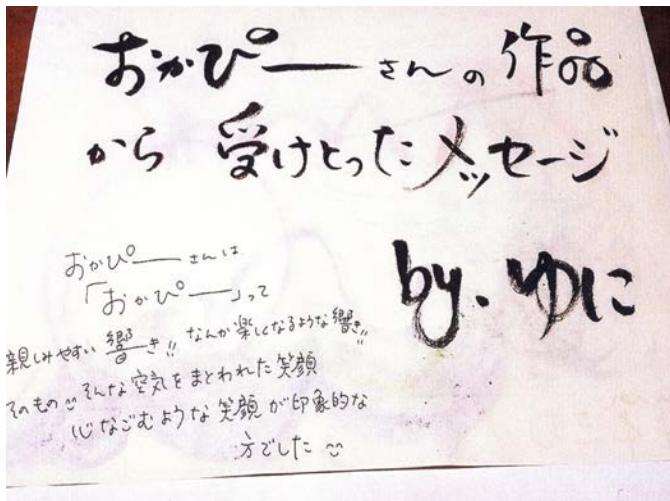 おかぴーさんの作品
から 受けとったメッセージ
by. ゆに
おかぴーさんは
「おかぴー」って
親しみやすい響き!! なんか楽しくなるような響き!!
そのもの そんな空気をまとわれた笑顔
心なごむような笑顔が印象的な
方でした